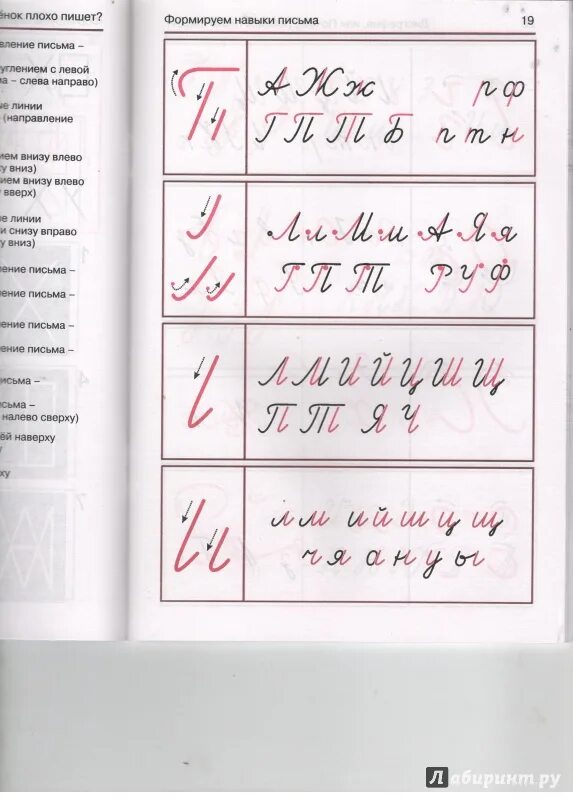 ёнок плохо пишет?
вление письма –
углением с левой
ма – слева направо)
ые линии
(направление
ием внизу влево
у вниз)
ием внизу влево
вверх)
ые линии
и снизу вправо
у вниз)
ление письма –
ление письма –
ение письма –
ение письма –
исьма –
сьма –
налево сверху)
ей наверху
ху
Формируем навыки письма 19
А Ж ж р ф
Г П Т Б п т н
Л л М м А Я я
Г П Т Р У Ф
Л М И Й Ц Ш Щ
П Т Я Ч
л м и й ш ц щ
ч я а н у ы
Лабиринт.ру